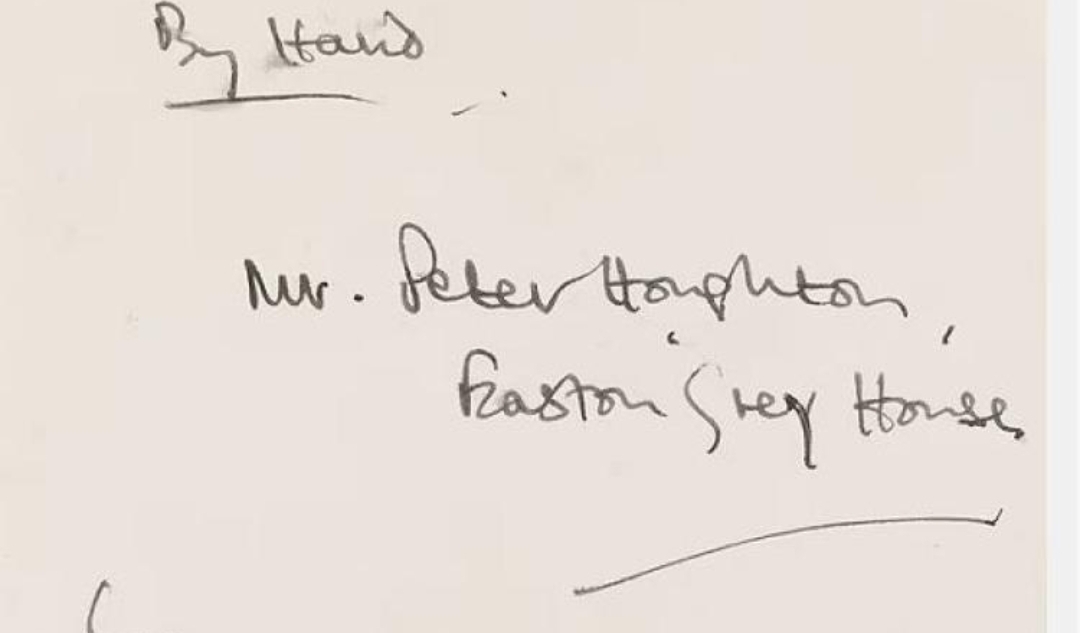 By Hand
Mr. Peter Houghton,
Easton Grey House,